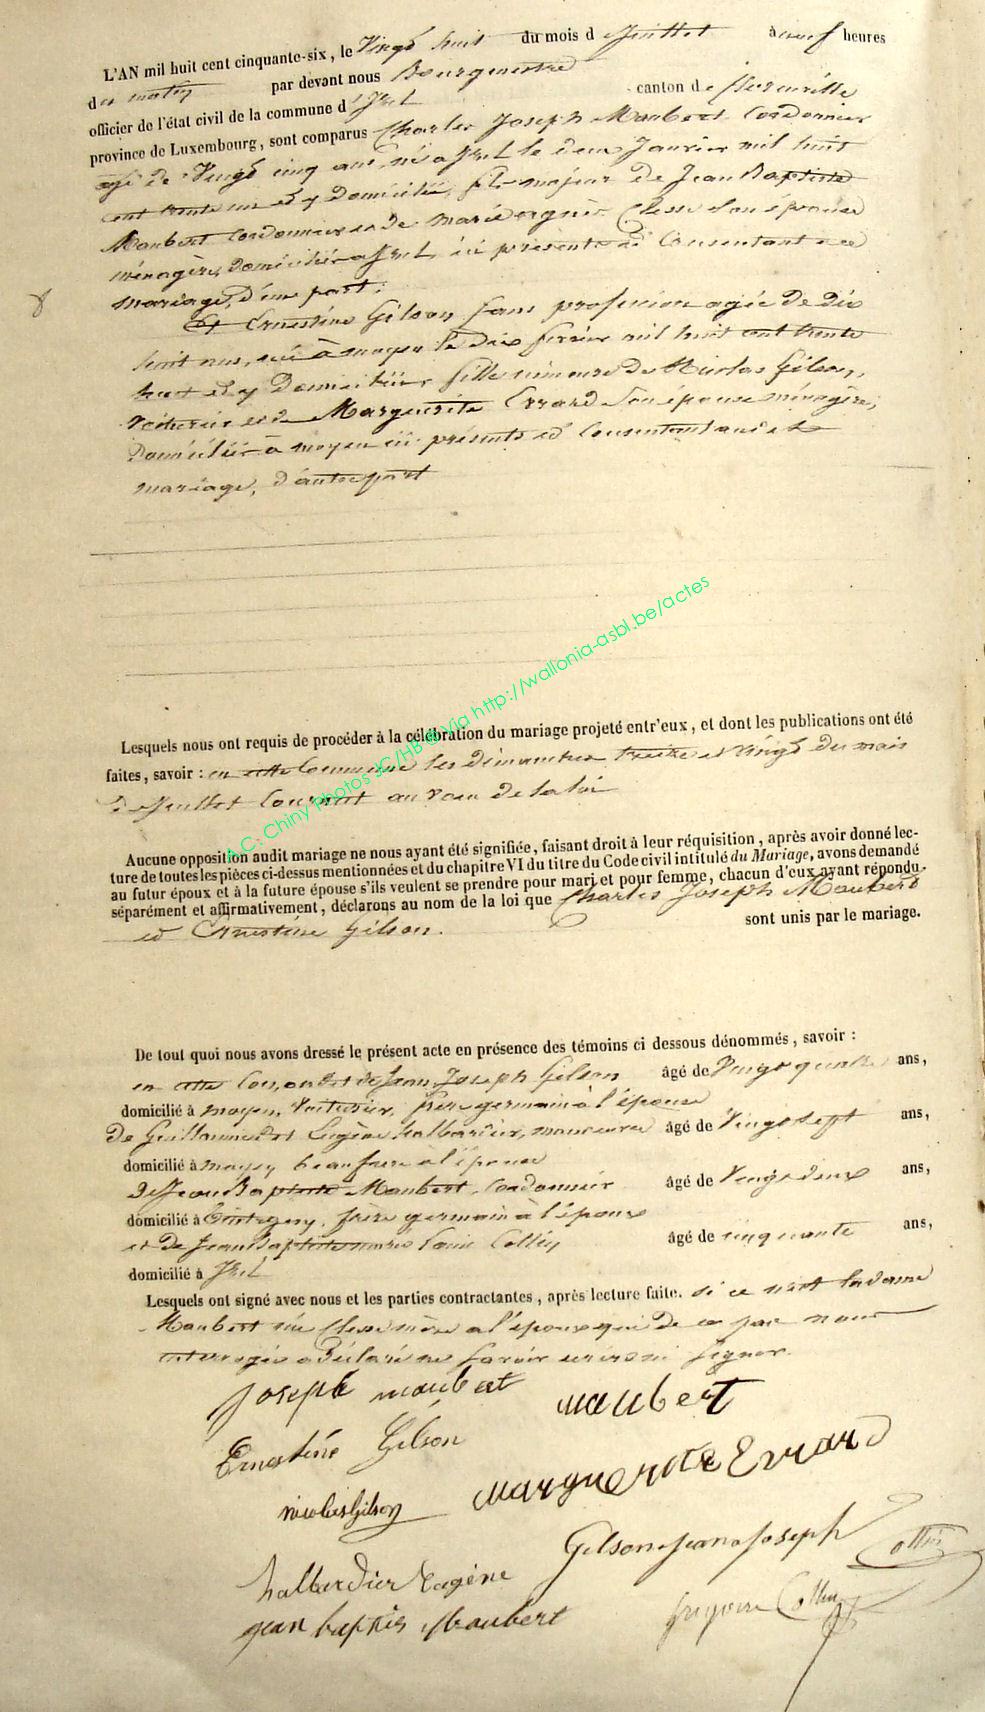 L'AN mil huit cent cinquante-six, le Vingt huit du mois d Juillet à neuf heures
du matin par devant nous Bourgmestre
officier de l'état civil de la commune d'Izel canton de florenville
province de Luxembourg, sont comparus Charles Joseph Maubert Cordonnier
agé de Vingt cinq ans né a Izel le deux Janvier mil huit
cent trente un et y domicilié, fils majeur de Jean Baptiste
Maubert Cordonnier et de marie agnès Classe son épouse
ménagère, domiciliés a Izel, ici présents et Consentant a ce
mariage, d'une part;
Et Ernestine Gilson sans profession agée de dix
huit ans, née à moyen le dix février mil huit cent trente
huit et y Domiciliée fille mineure de Nicolas Gilson,
Voiturier et de Marguerite Errard son épouse ménagère,
Domiciliés à moyen ici présents et Consentant audit
mariage, d'autre part
Lesquels nous ont requis de procéder à la célébration du mariage projeté entr'eux, et dont les publications ont été
faites, savoir : en cette Commune les dimanches treize et Vingt du mois
de Juillet Courant au vœu de la loi
A.C: Chiny Photos JC/HB @ Via http://wallonia-asbl.be/actes
Aucune opposition audit mariage ne nous ayant été signifiée, faisant droit à leur réquisition, après avoir donné lec-
ture de toutes les pièces ci-dessus mentionnées et du chapitre VI du titre du Code civil intitulé du Mariage, avons demandé
au futur époux et à la future épouse s'ils veulent se prendre pour mari et pour femme, chacun d'eux ayant répondu
séparément et affirmativement, déclarons au nom de la loi que Charles Joseph Maubert
et Ernestine Gilson. sont unis par le mariage.
De tout quoi nous avons dressé le présent acte en présence des témoins ci dessous dénommés, savoir :
de Jean Joseph Gilson âgé de Vingt quatre ans,
domicilié à moyen, Voiturier, frère germain à l'épouse
De Guillaume Eugène halbardier, manœuvre âgé de Vingt sept ans,
domicilié à moyen beau frère à l'épouse
De Jean Baptiste Maubert, Cordonnier âgé de Vingt deux ans,
domicilié à frère germain à l'époux
et de Jean Baptiste Collin âgé de cinquante ans,
domicilié à Izel
Lesquels ont signé avec nous et les parties contractantes, après lecture faite. si ce n'est la dame
Maubert née Classe mère a l'époux qui de ce par nous
interrogée a Déclaré ne savoir écrire ni signer.
Joseph maubert maubert
Ernestine Gilson
nicolas Gilson Marguerite Errard
Gilson Jean Joseph Collin
halbardier Eugène
jean baptis Maubert Grégoire Collin